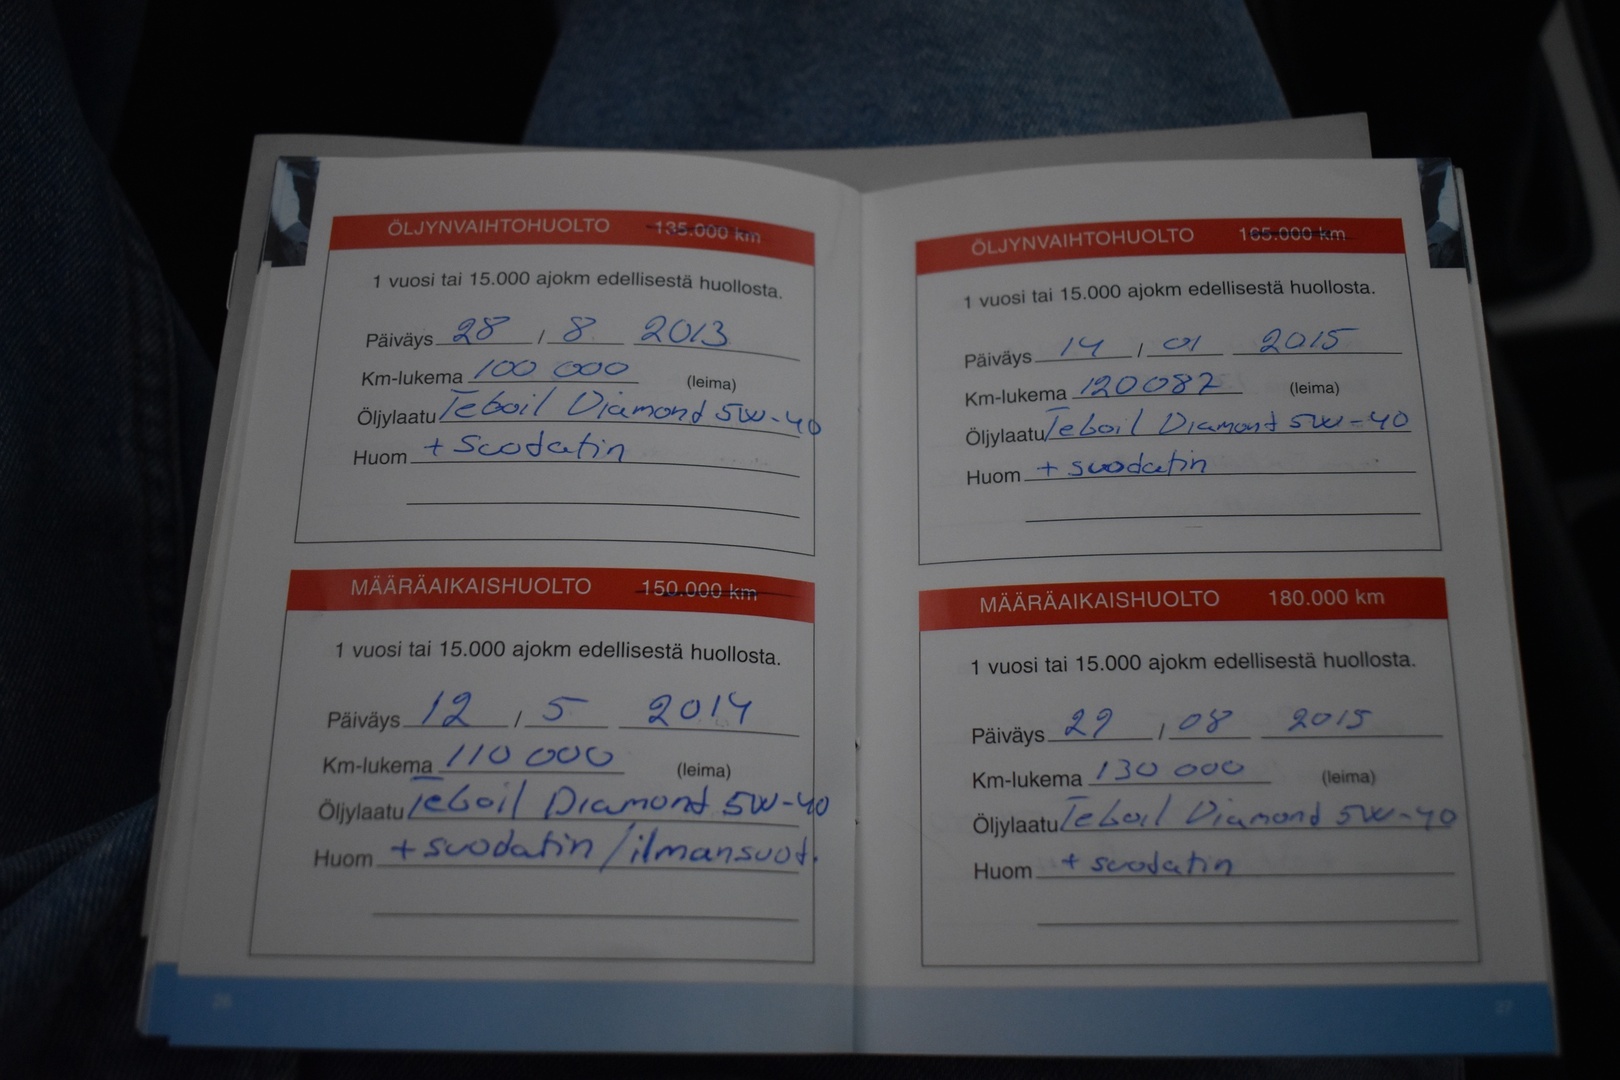 ÖLJYNVAIHTOHUOLTO 135.000 km
1 vuosi tai 15.000 ajokm edellisestä huollosta.
Päiväys 28 / 8 2013
Km-lukema 100 000 (leima)
Öljylaatu Teboil Diamond 5W-40
Huom + Suodatin
MÄÄRÄAIKAISHUOLTO 150.000 km
1 vuosi tai 15.000 ajokm edellisestä huollosta.
Päiväys 12 / 5 2014
Km-lukema 110 000 (leima)
Öljylaatu Teboil Diamond 5W-40
Huom + suodatin / ilmansuod.
26
ÖLJYNVAIHTOHUOLTO 165.000 km
1 vuosi tai 15.000 ajokm edellisestä huollosta.
Päiväys 14 / 01 2015
Km-lukema 120087 (leima)
Öljylaatu Teboil Diamond 5W-40
Huom + suodatin
MÄÄRÄAIKAISHUOLTO 180.000 km
1 vuosi tai 15.000 ajokm edellisestä huollosta.
Päiväys 29 / 08 2015
Km-lukema 130 000 (leima)
Öljylaatu Teboil Diamond 5W-40
Huom + suodatin
27